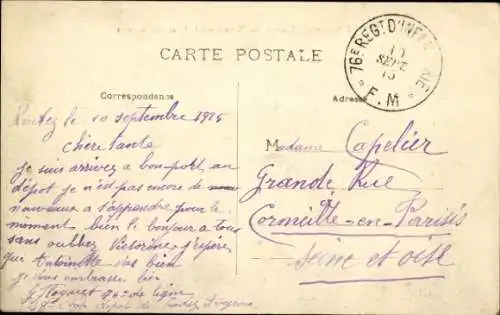 CARTE POSTALE
76e REGT D'INFANTERIE
10
SEPT
15
F. M
Correspondance
Adresse
Rodez le 10 septembre 1915
Chère tante
je suis arrivez a bon port au
dépot je n'est pas encore de
nouveaux a t'apprendre pour le
moment bien le bonjour a tous
sans oubliez Victorine j'espère
que Antoinette vas bien
je vous embrasse bien
76e de ligne
Dépot de Rodez Aveyron
Madame Capelier
Grande Rue
Cormeille-en-Parisis
Seine et Oise